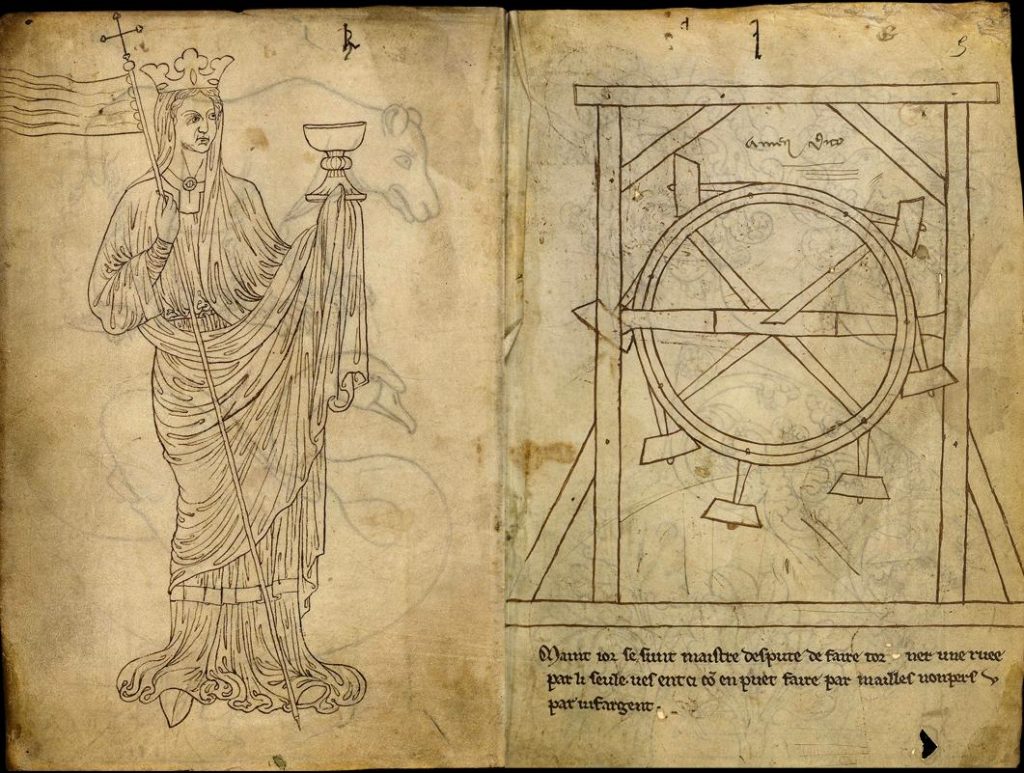 5
amen dico
Maint ior se sunt maistre despute de faire tor ner une ruee
par li seule ves ent ci cō en puet faire par mailles nonpers v
par uif argent .